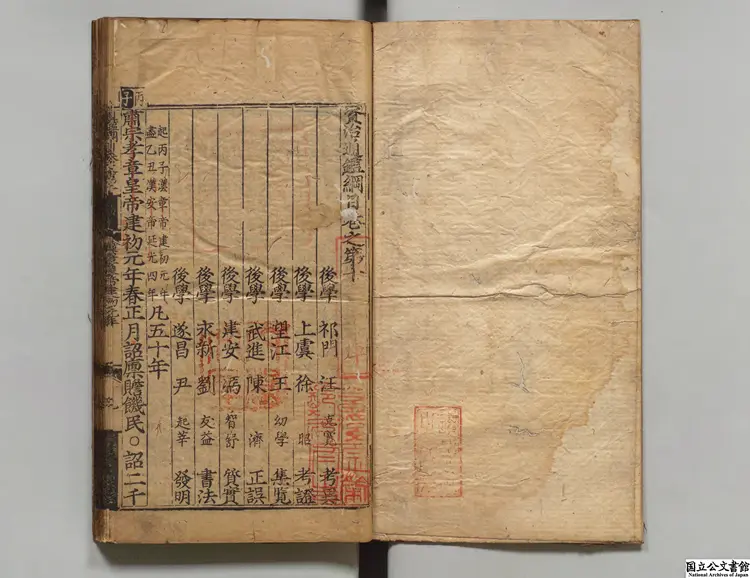 資治通鑑綱目卷之第十
後學 祁門 汪 克寬 考異
後學 上虞 徐 昭 考證
後學 望江 王 幼學 集覽
後學 武進 陳 濟 正誤
後學 建安 馮 智舒 質實
後學 永新 劉 友益 書法
後學 遂昌 尹 起莘 發明
起丙子漢章帝建初元年
盡乙丑漢安帝延光四年
凡五十年
丙子
肅宗孝章皇帝建初元年春正月詔廩贍饑民○詔二千
国立公文書館
National Archives of Japan